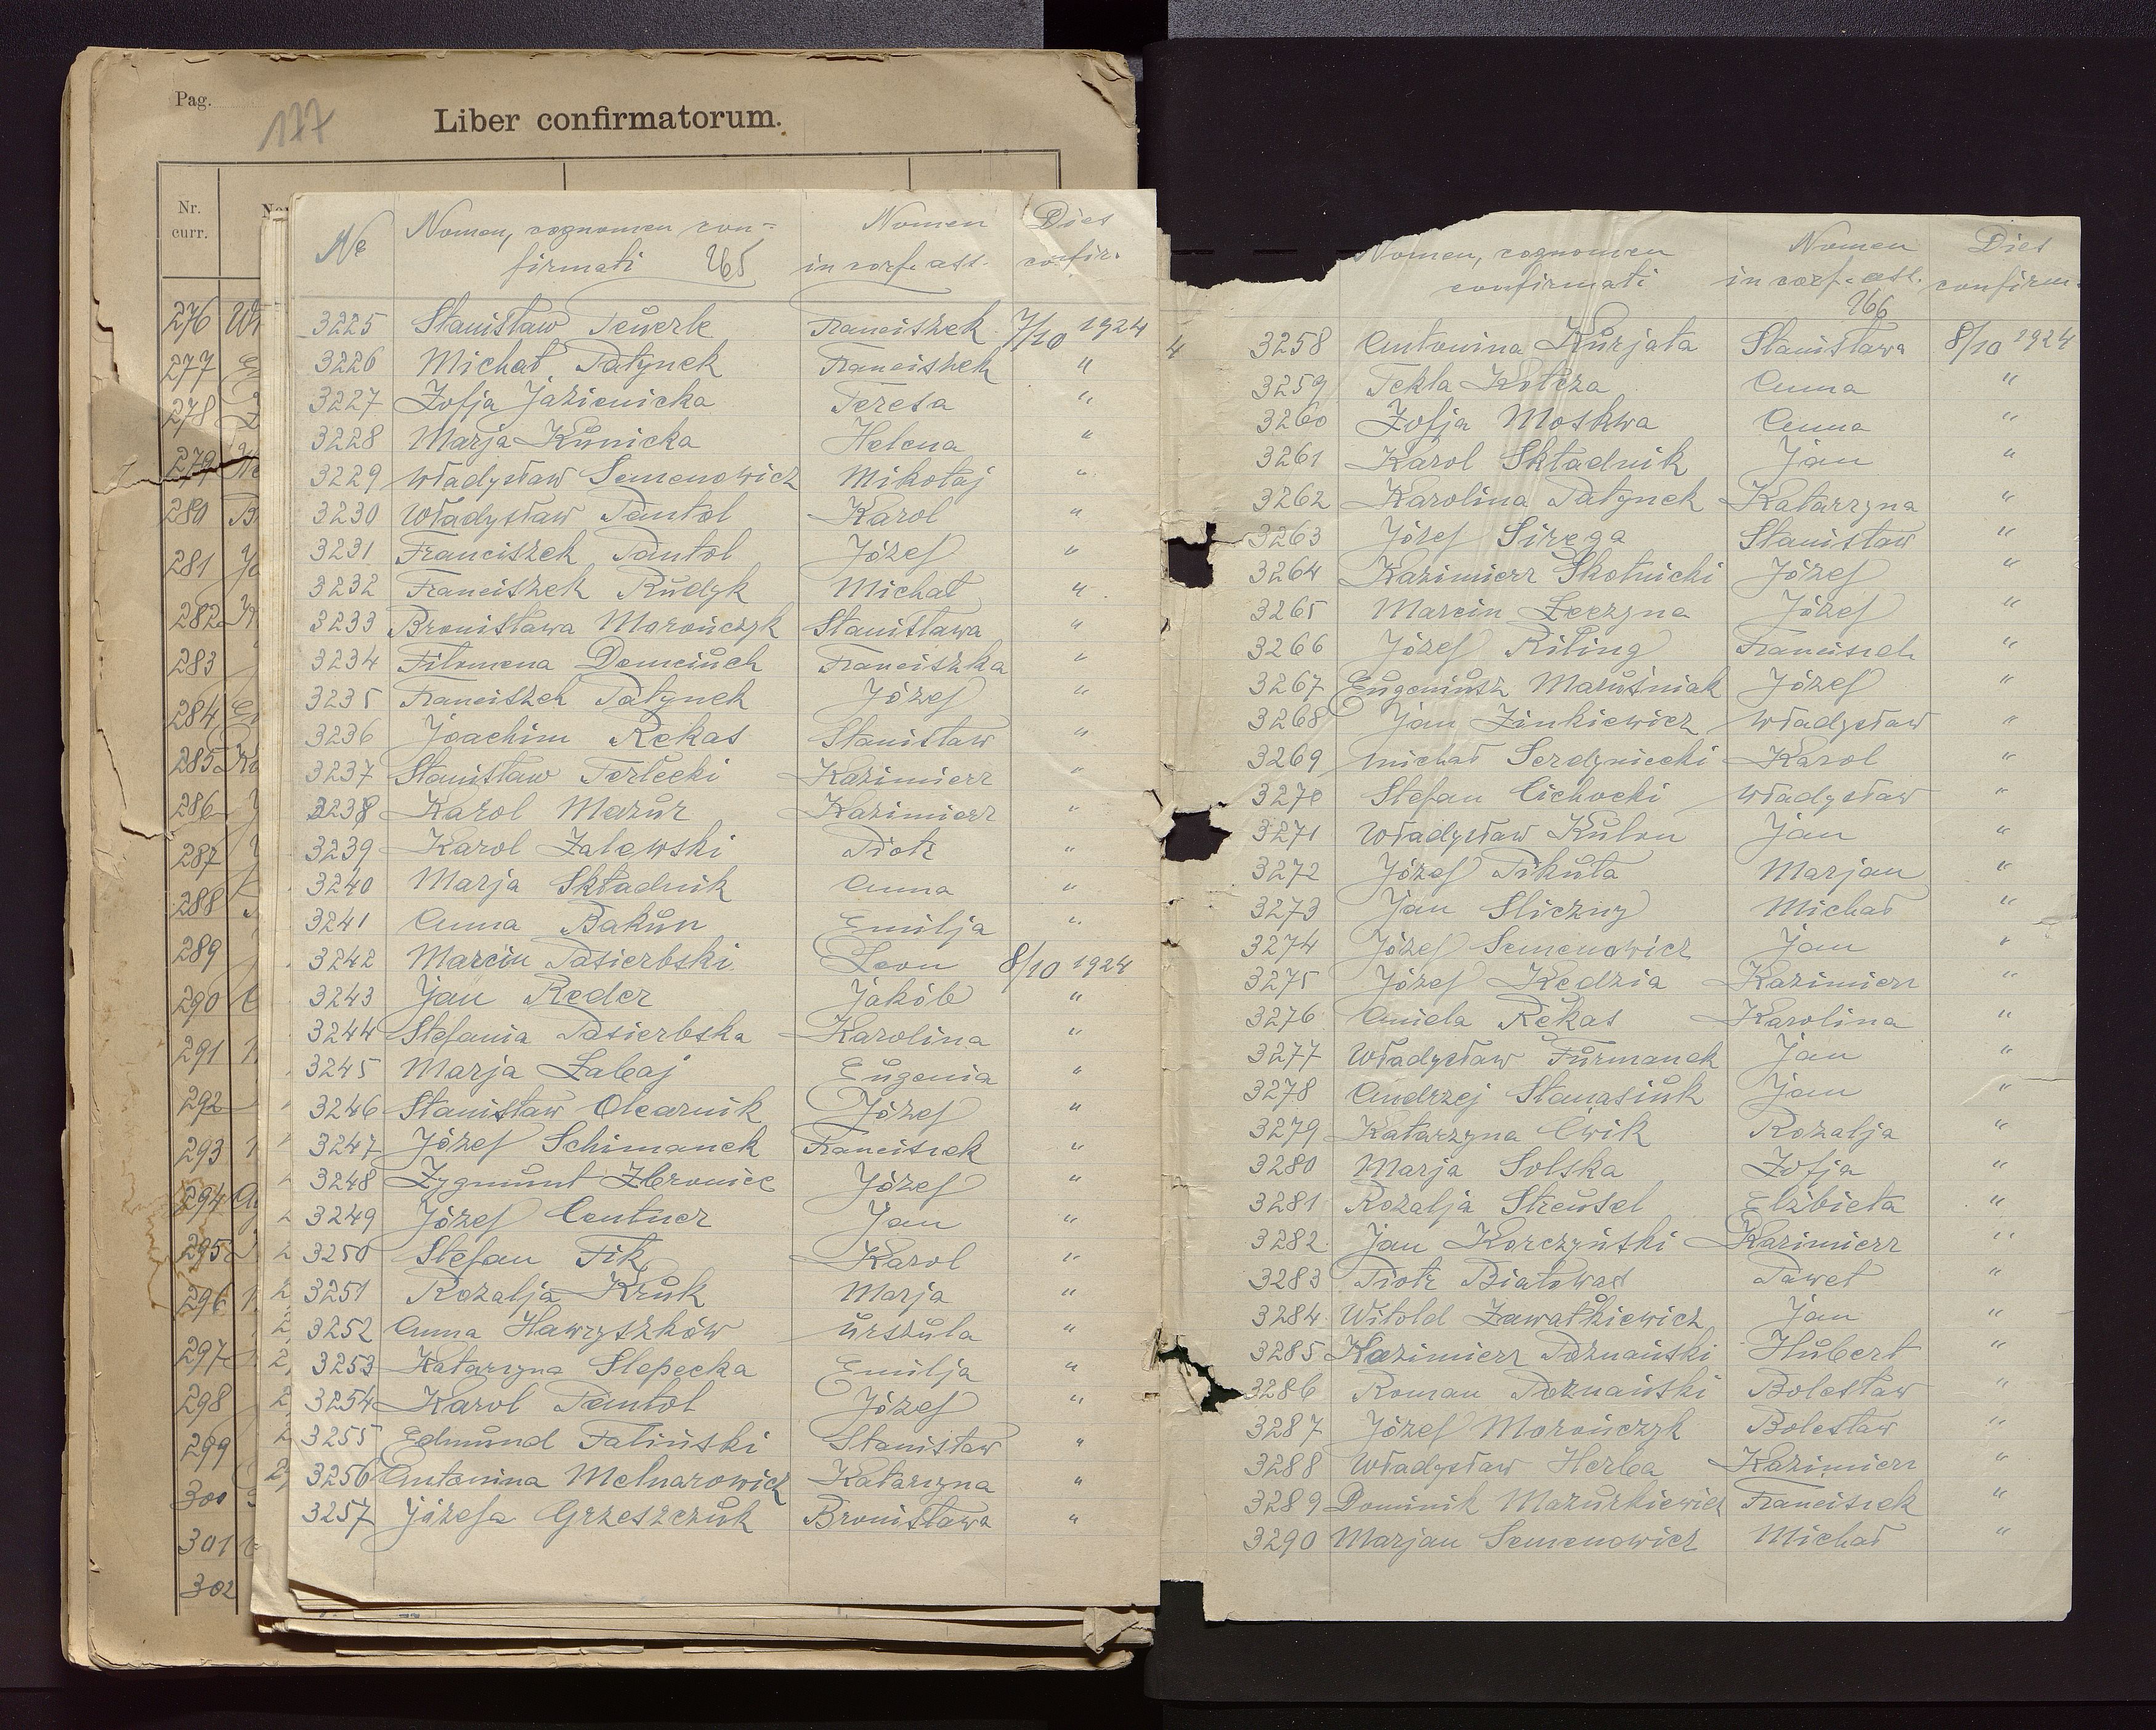 Pag.
177
Liber confirmatorum.
Nr.
curr.
276
277
278
279
280
281
282
283
284
285
286
287
288
289
290
291
292
293
294
295
296
297
298
299
300
301
302
№ Nomen, cognomen con- Nomen Dies
firmati 265 in conf. ass. confir.
3225 Stanisław Teuerle Franciszek 7/10 1924
3226 Michał Patynek Franciszek "
3227 Zofja Jazienicka Teresa "
3228 Marja Kunicka Helena "
3229 Władysław Semenowicz Mikołaj "
3230 Władysław Pantoł Karol "
3231 Franciszek Pantoł Józef "
3232 Franciszek Rudyk Michał "
3233 Bronisława Morończyk Stanisława "
3234 Filomena Demciuch Franciszka "
3235 Franciszek Patynek Józef "
3236 Joachim Rekas Stanisław "
3237 Stanisław Terlecki Kazimierz "
3238 Karol Mazur Kazimierz "
3239 Karol Zalewski Piotr "
3240 Marja Składnik Anna "
3241 Anna Bakun Emilja "
3242 Marcin Pasierbski Leon 8/10 1924
3243 Jan Reder Jakób "
3244 Stefania Pasierbska Karolina "
3245 Marja Łabaj Eugenia "
3246 Stanisław Olearnik Józef "
3247 Józef Schimanek Franciszek "
3248 Zygmunt Józef "
3249 Józef Centner Jan "
3250 Stefan Fik Karol "
3251 Rozalja Kruk Marja "
3252 Anna Hawryszków Urszula "
3253 Katarzyna Slepecka Emilja "
3254 Karol Pantoł Józef "
3255 Edmund Faliński Stanisław "
3256 Antonina Melnarowicz Katarzyna "
3257 Józefa Grzeszczuk Bronisława "
Nomen, cognomen Nomen Dies
confirmati in conf. ass. confirm.
266
3258 Antonina Kurjata Stanisława 8/10 1924
3259 Tekla Kotcza Anna "
3260 Zofja Moskwa Anna "
3261 Karol Składnik Jan "
3262 Karolina Patynek Katarzyna "
3263 Józef Sirega Stanisław "
3264 Kazimierz Skotnicki Józef "
3265 Marcin Łeczyna Józef "
3266 Józef Riting Franciszek "
3267 Eugeniusz Maruśniak Józef "
3268 Jan Zinkiewicz Władysław "
3269 Michał Serdyniecki Karol "
3270 Stefan Cichocki Władysław "
3271 Władysław Kulon Jan "
3272 Józef Pikuła Marjan "
3273 Jan Sliczny Michał "
3274 Józef Semenowicz Jan "
3275 Józef Kedzia Kazimierz "
3276 Aniela Rekas Karolina "
3277 Władysław Furmanek Jan "
3278 Andrzej Stanasiuk Jan "
3279 Katarzyna Cwik Rozalja "
3280 Marja Solska Zofja "
3281 Rozalja Streusel Elżbieta "
3282 Jan Korczyński Kazimierz "
3283 Piotr Białowas Paweł "
3284 Witold Zawałkiewicz Jan "
3285 Kazimierz Poznański Hubert "
3286 Roman Poznański Bolesław "
3287 Józef Morończyk Bolesław "
3288 Władysław Herba Kazimierz "
3289 Dominik Mazurkiewicz Franciszek "
3290 Marjan Semenowicz Michał "